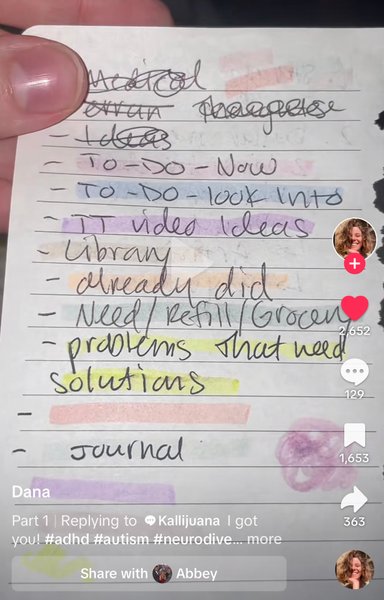 Medical
errun
- Ideas
- TO-DO-NOW
- TO-DO-look into
- TT video Ideas
- Library
- already did
- Need/Refill/Grocery
- problems that need
solutions
-
- Journal
2,652
129
1,653
363
Dana
Part 1 | Replying to Kallijuana I got
you! #adhd #autism #neurodive... more
Share with Abbey